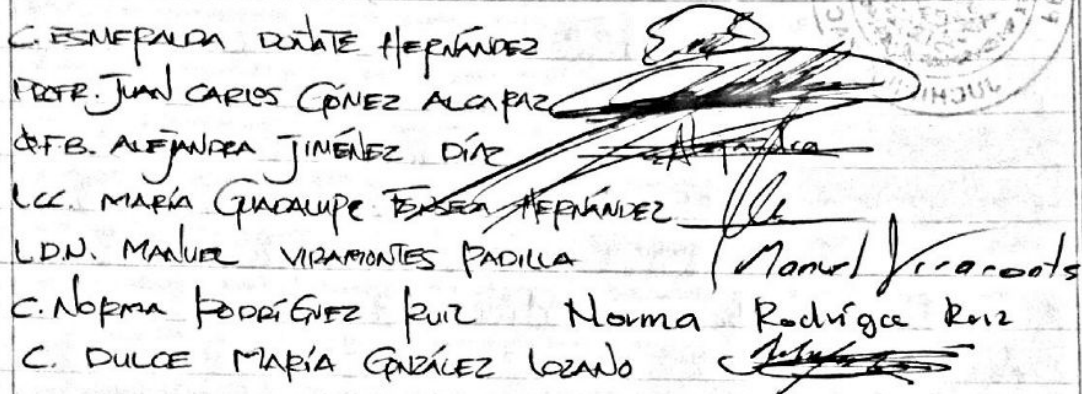 C. ESMERALDA DOÑATE HERNÁNDEZ
PROFR. JUAN CARLOS GÓMEZ ALCARAZ
Q.F.B. ALEJANDRA JIMÉNEZ DÍAZ Alejandra
LCC. MARÍA GUADALUPE HERNÁNDEZ
L.D.N. MANUEL VIRAMONTES PADILLA Manuel Viramonts
C. NORMA RODRÍGUEZ RUIZ Norma Rodrígez Ruiz
C. DULCE MARÍA GONZÁLEZ LOZANO